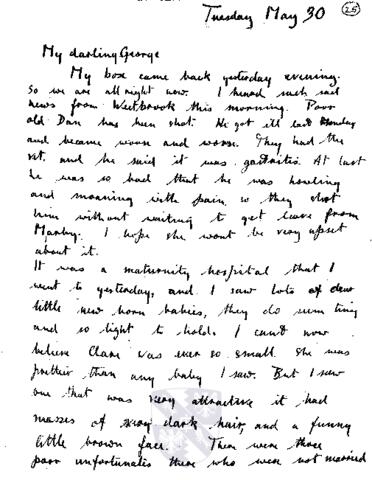 Tuesday May 30
25
My darling George
My box came back yesterday evening.
So we are all right now. I heard such sad
news from Westbrook this morning. Poor
old Dan has been shot. He got ill last Monday
and became worse and worse. They had the
vet. and he said it was gastritis. At last
he was so bad that he was howling
and moaning with pain, so they shot
him without waiting to get leave from
I hope she wont be very upset
about it.
It was a maternity hospital that I
went to yesterday, and I saw lots of dear
little new born babies, they do seem tiny
and so light to hold. I can't now
believe Clare was ever so small. She was
prettier than any baby I saw. But I saw
one that was very attractive it had
masses of very dark hair, and a funny
little brown face. There were three
poor unfortunates there who were not married